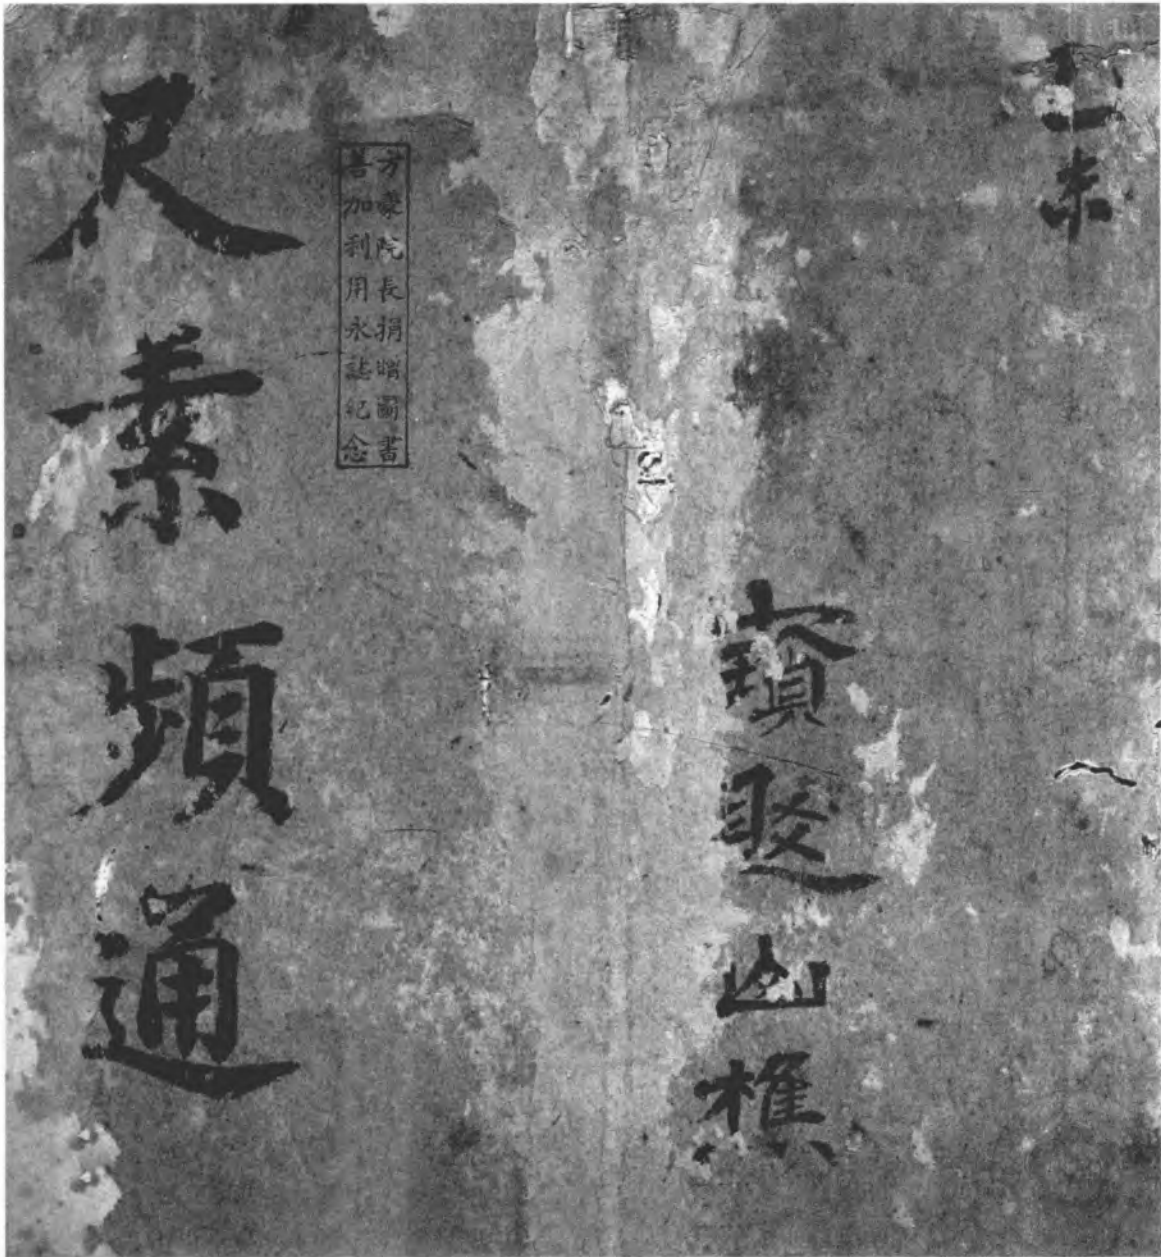 寶山樵
方豪院長捐贈圖書
善加利用永誌紀念
尺素頻通